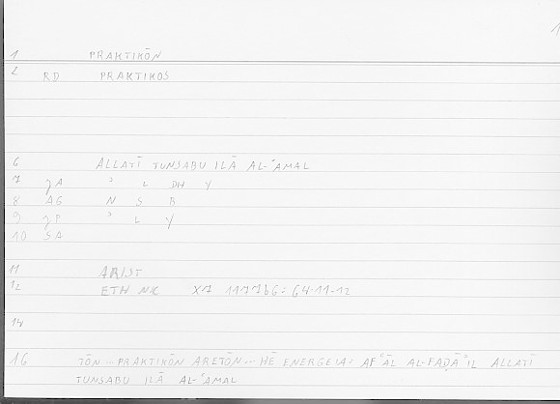 1 PRAKTIKŌN
2 RD PRAKTIKOS
6 ALLATĪ TUNSABU ILĀ AL-ʿAMAL
7 JA ʾ L DH Y
8 AG N S B
9 JP ʾ L Y
10 SA
11 ARIST
12 ETH NIC X7 1177b6: 64-11-12
14
16 TŌN... PRAKTIKŌN ARETŌN... HĒ ENERGEIA: AFʿĀL AL-FAḌĀʾIL ALLATĪ
TUNSABU ILĀ AL-ʿAMAL